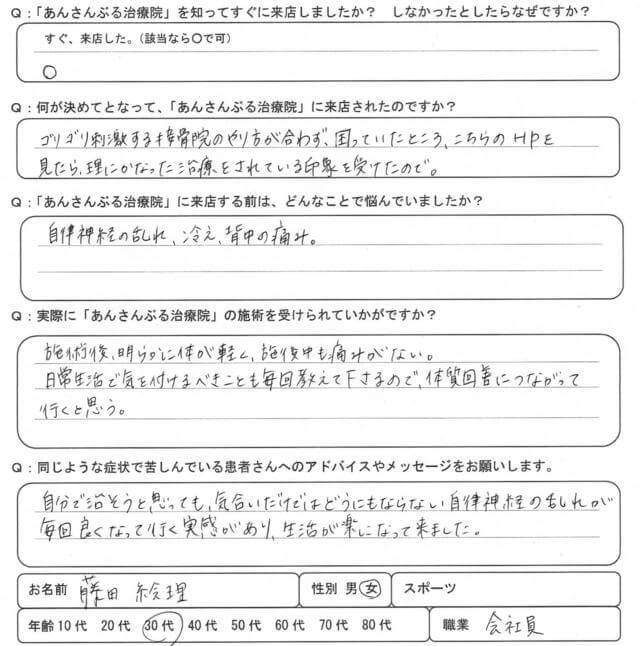 Q：「あんさんぶる治療院」を知ってすぐに来店しましたか？　しなかったとしたらなぜですか？
すぐ、来店した。（該当なら〇で可）
〇
Q：何が決めてとなって、「あんさんぶる治療院」に来店されたのですか？
ゴリゴリ刺激する接骨院のやり方が合わず、困っていたところ、こちらのHPを
見たら、理にかなった治療をされている印象を受けたので。
Q：「あんさんぶる治療院」に来店する前は、どんなことで悩んでいましたか？
自律神経の乱れ、冷え、背中の痛み。
Q：実際に「あんさんぶる治療院」の施術を受けられていかがですか？
施術後、明らかに体が軽く、施後中も痛みがない。
日常生活で気を付けるべきことも毎回教えて下さるので、体質回善につながって
行くと思う。
Q：同じような症状で苦しんでいる患者さんへのアドバイスやメッセージをお願いします。
自分で治そうと思っても、気合いだけではどうにもならない自律神経の乱れが
毎回良くなって行く実感があり、生活が楽になって来ました。
お名前　藤田 絵理　性別 男 女　スポーツ
年齢 10代　20代　30代　40代　50代　60代　70代　80代　職業　会社員